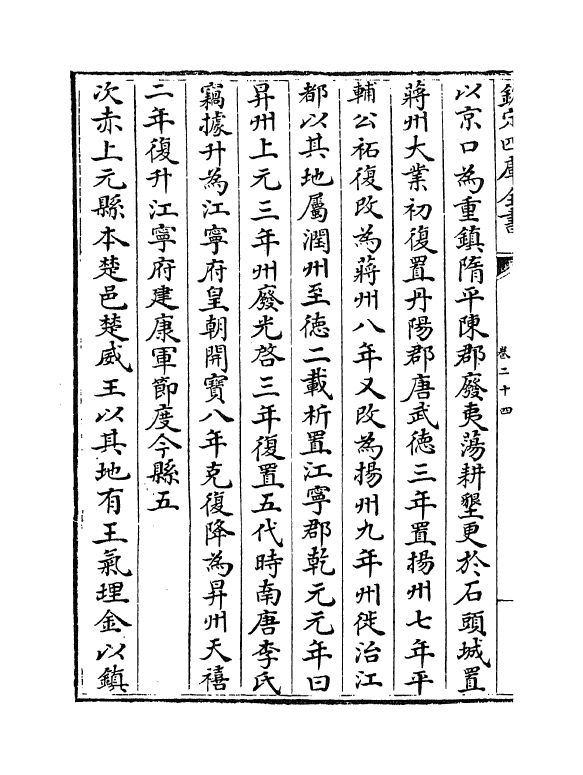 欽定四庫全書
卷二十四
以京口為重鎮隋平陳郡廢夷蕩耕墾更於石頭城置
蔣州大業初復置丹陽郡唐武徳三年置揚州七年平
輔公祏復改為蔣州八年又改為揚州九年州徙治江
都以其地屬潤州至徳二載析置江寧郡乾元元年曰
昇州上元三年州廢光啓三年復置五代時南唐李氏
竊據升為江寧府皇朝開寶八年克復降為昇州天禧
二年復升江寧府建康軍節度今縣五
次赤上元縣本楚邑楚威王以其地有王氣埋金以鎮